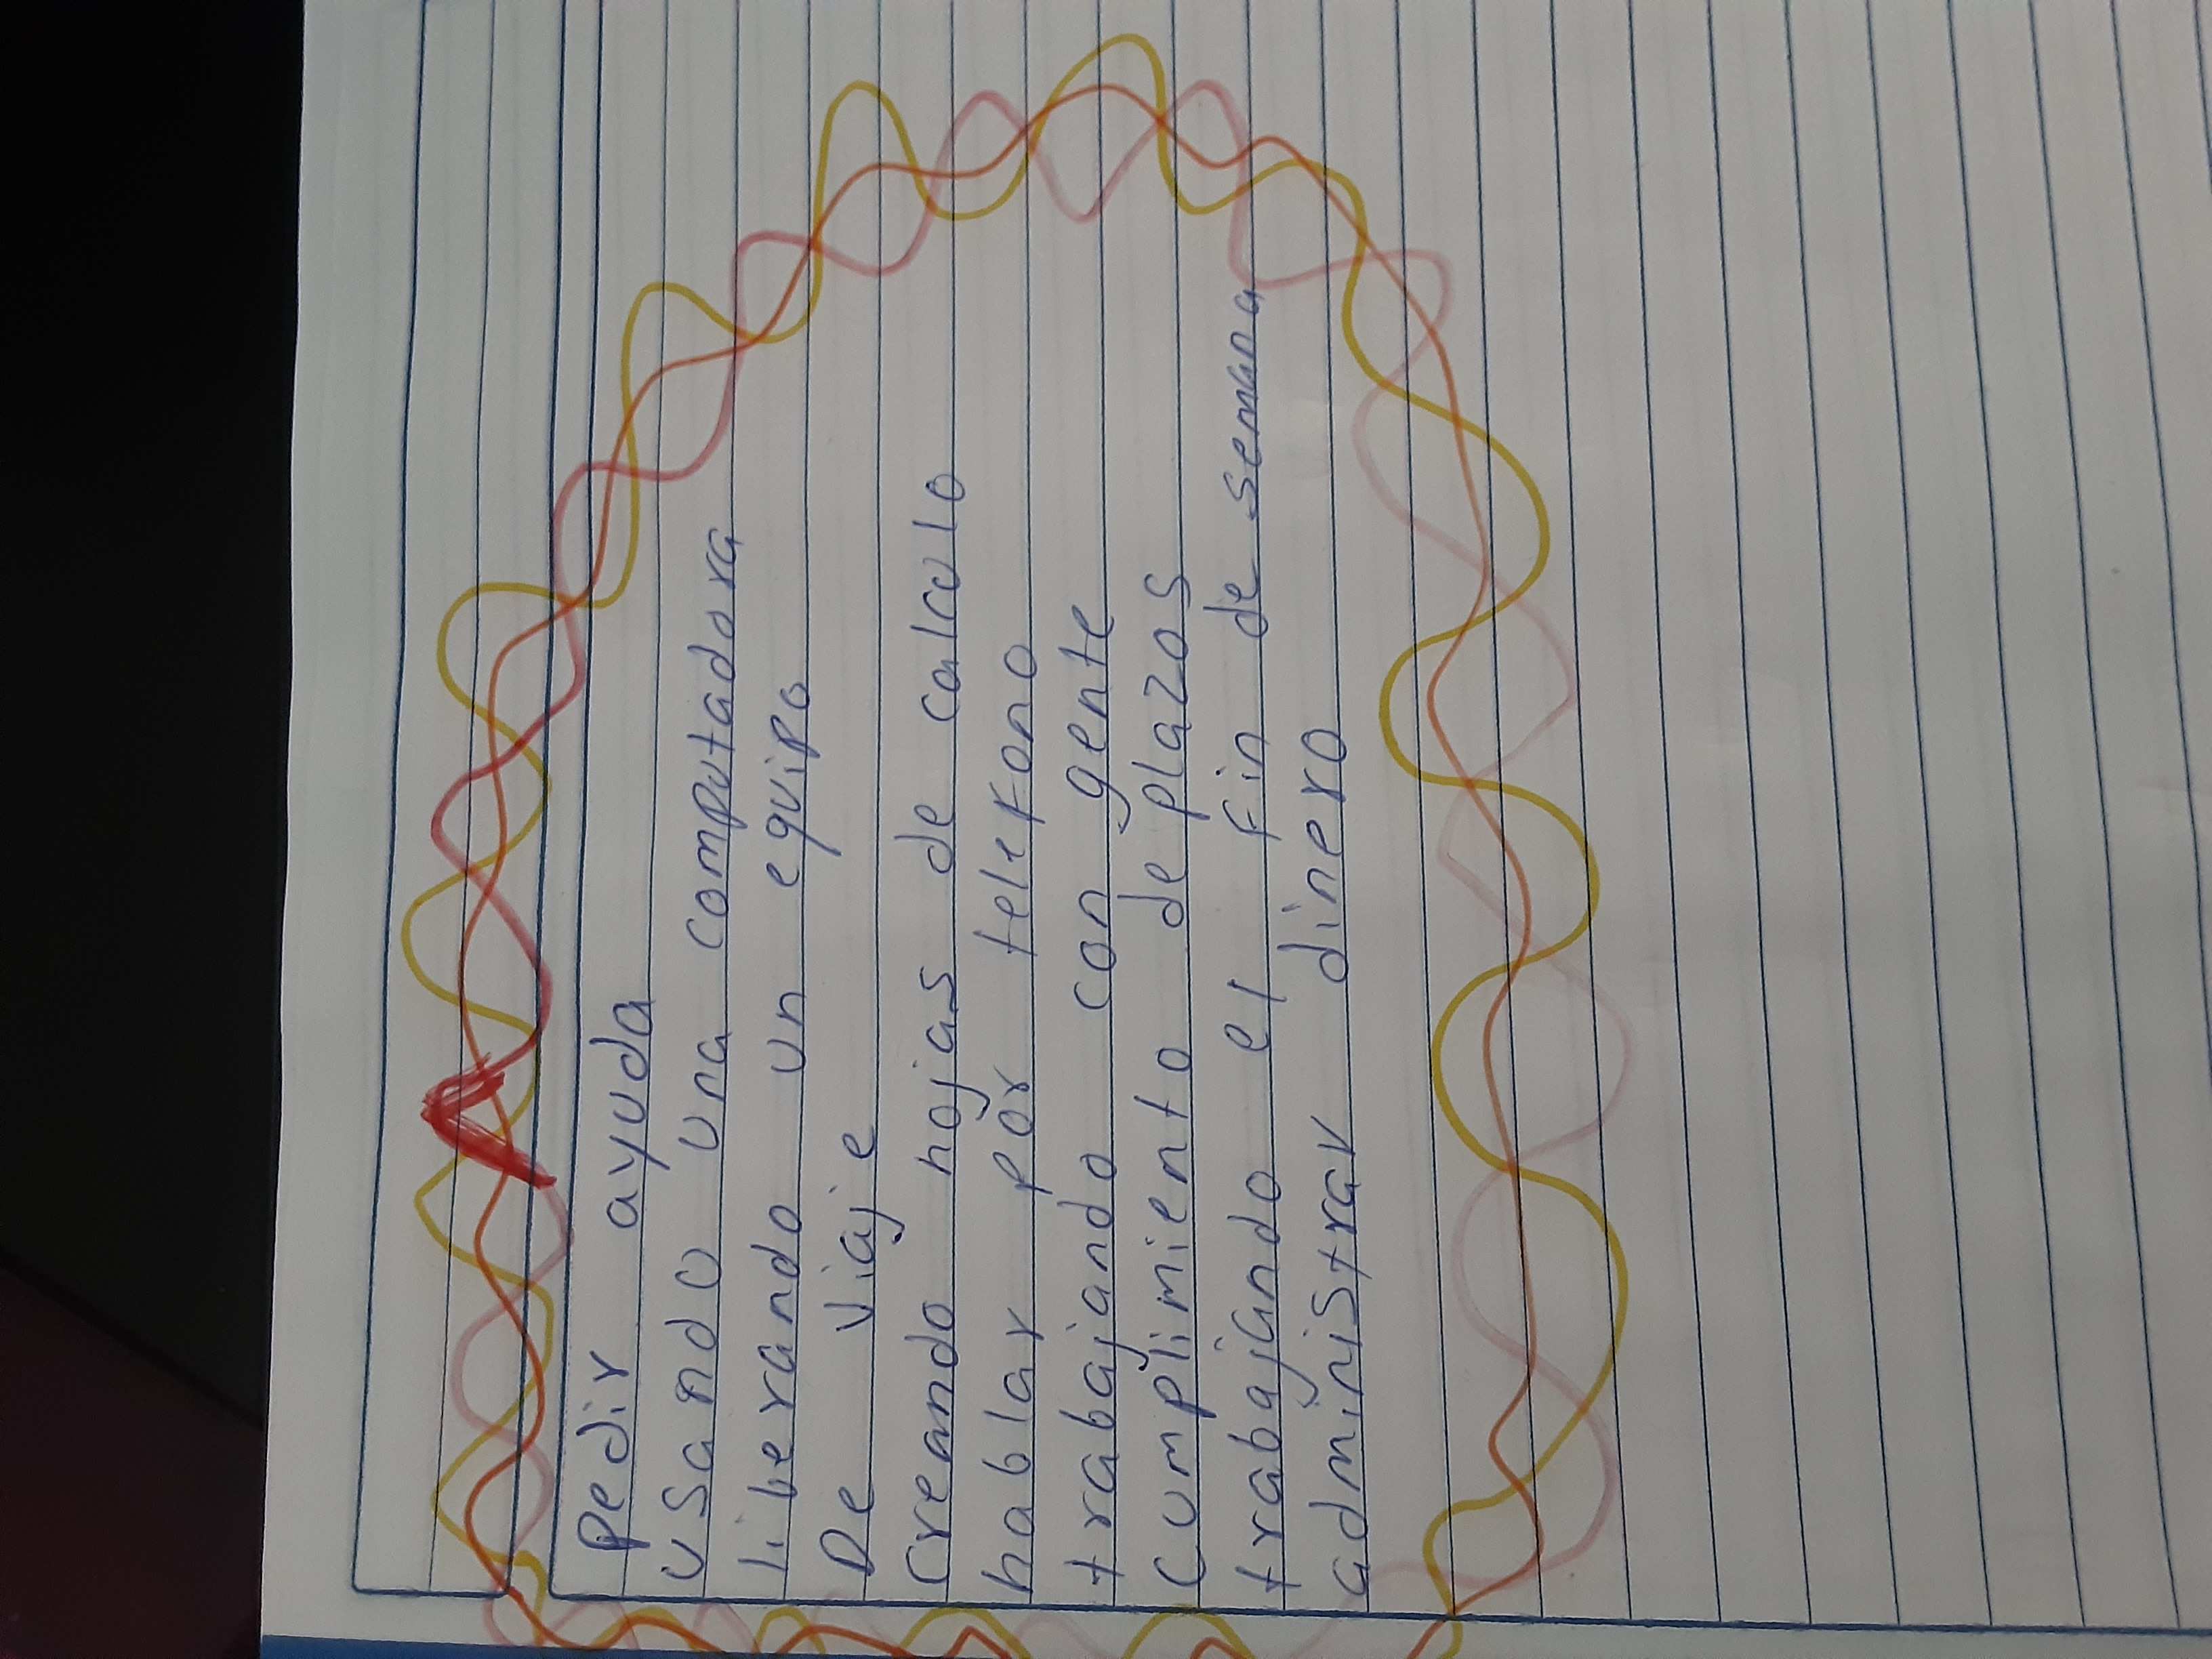 Pedir ayuda
usando una computadora
liberando un equipo
De viaje
Creando hojas de calculo
hablar por telefono
trabajando con gente
Cumplimiento de plazos
trabajando el fin de semana
administrar dinero